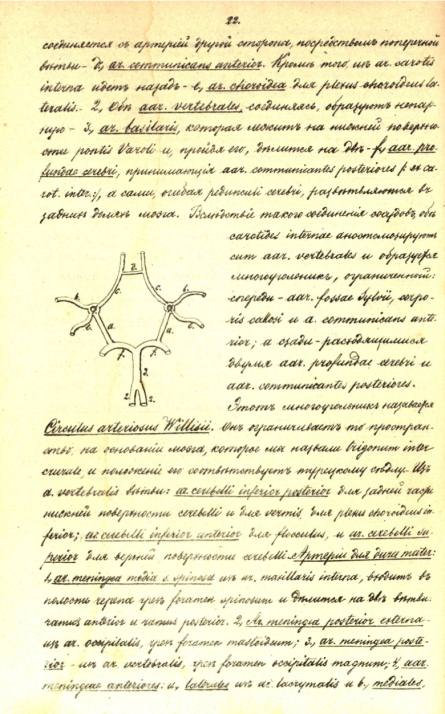 22.
соединяется съ артеріей другой стороны, посредствомъ поперечной
вѣтви - d, ar. communicans anterior. Кромѣ того, изъ ar. carotis
interna идетъ назадъ - e, ar. choroidea для plexus choroideus la-
teralis. - 2, Обѣ aar. vertebrales, соединяясь, образуютъ непар-
ную - 3, ar. basilaris, которая лежитъ на нижней поверхно-
сти pontis Varoli и, пройдя его, дѣлится на двѣ - f, aar. pro-
fundae cerebri, принимающія aar. communicantes posteriores
rot. inter.), а сами, огибая pedunculi cerebri, развѣтвляются въ
заднихъ доляхъ мозга. Вслѣдствіе такого соединенія сосудовъ, обѣ
carotides internae анастомозируютъ
cum aar. vertebrales и образуется
многоугольникъ, ограниченный:
спереди - aar. fossae Sylvii, corpo-
ris callosi и a. communicans ante-
rior; а сзади - расходящимися
двумя aar. profundae cerebri и
aar. communicantes posteriores.
Этотъ многоугольникъ называется
Circulus arteriosus Willisii. Онъ ограничиваетъ то простран-
ство, на основаніи мозга, которое мы назвали trigonum inter
crurale и положеніе его соотвѣтствуетъ турецкому сѣдлу. Изъ
a. vertebralis вѣтви: ar. cerebelli inferior posterior для задней части
нижней поверхности cerebelli и для vermis для plexus choroideus in-
ferior; ar. cerebelli inferior anterior для flocculus, и ar. cerebelli su-
perior для верхней поверхности cerebelli. Артеріи для dura mater:
1, ar. meningea media s. spinosa изъ ar. maxillaris interna, входитъ въ
полость черепа чрезъ foramen spinosum и дѣлится на двѣ вѣтви:
ramus anterior и ramus posterior. 2, Ar. meningea posterior externa -
изъ ar. occipitalis, чрезъ foramen mastoideum; 3, ar. meningea poste-
rior - изъ ar. vertebralis, чрезъ foramen occipitalis magnum; 4, aar.
meningeae anteriores: a, laterales изъ ar. lacrymalis и b, mediales,
d.
c.
c.
b.
b.
e.
e.
a.
a.
f.
f.
3.
2.
2.